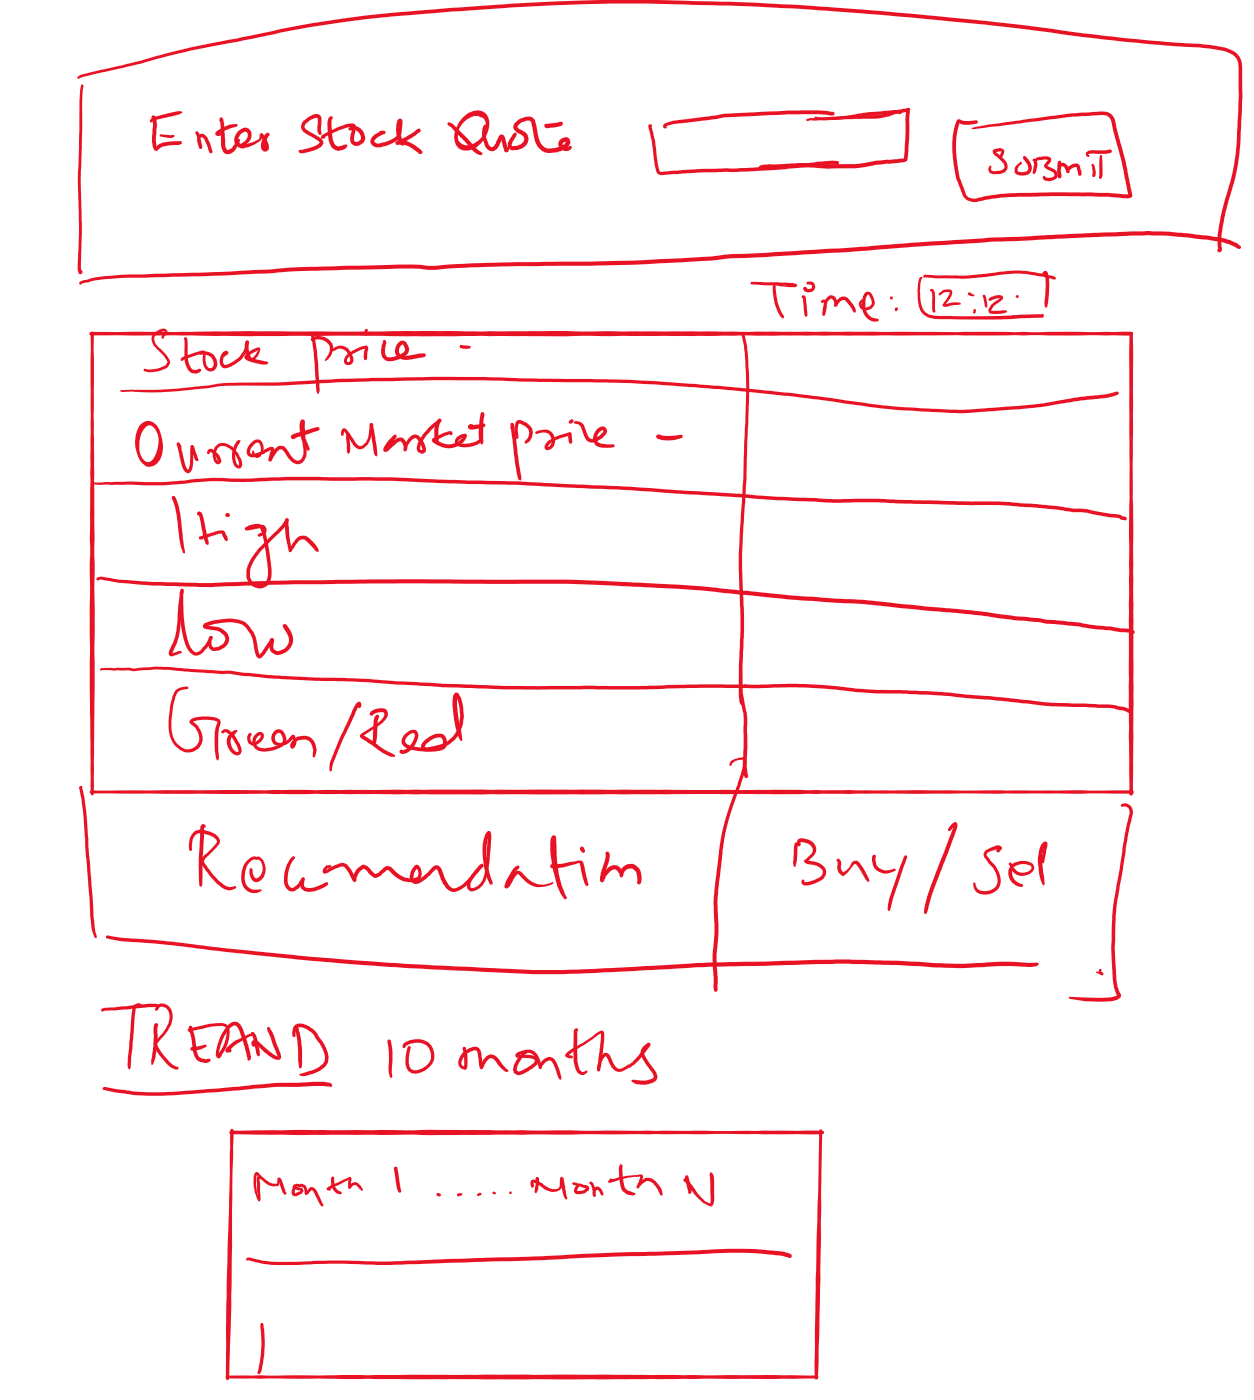 Enter Stock Quote
SUBMIT
Time: 12:12
Stock Price -
Current Market Price -
High
Low
Green/Red
Recomendation Buy/Sel
TREAND 10 months
Month 1 ...... Month N